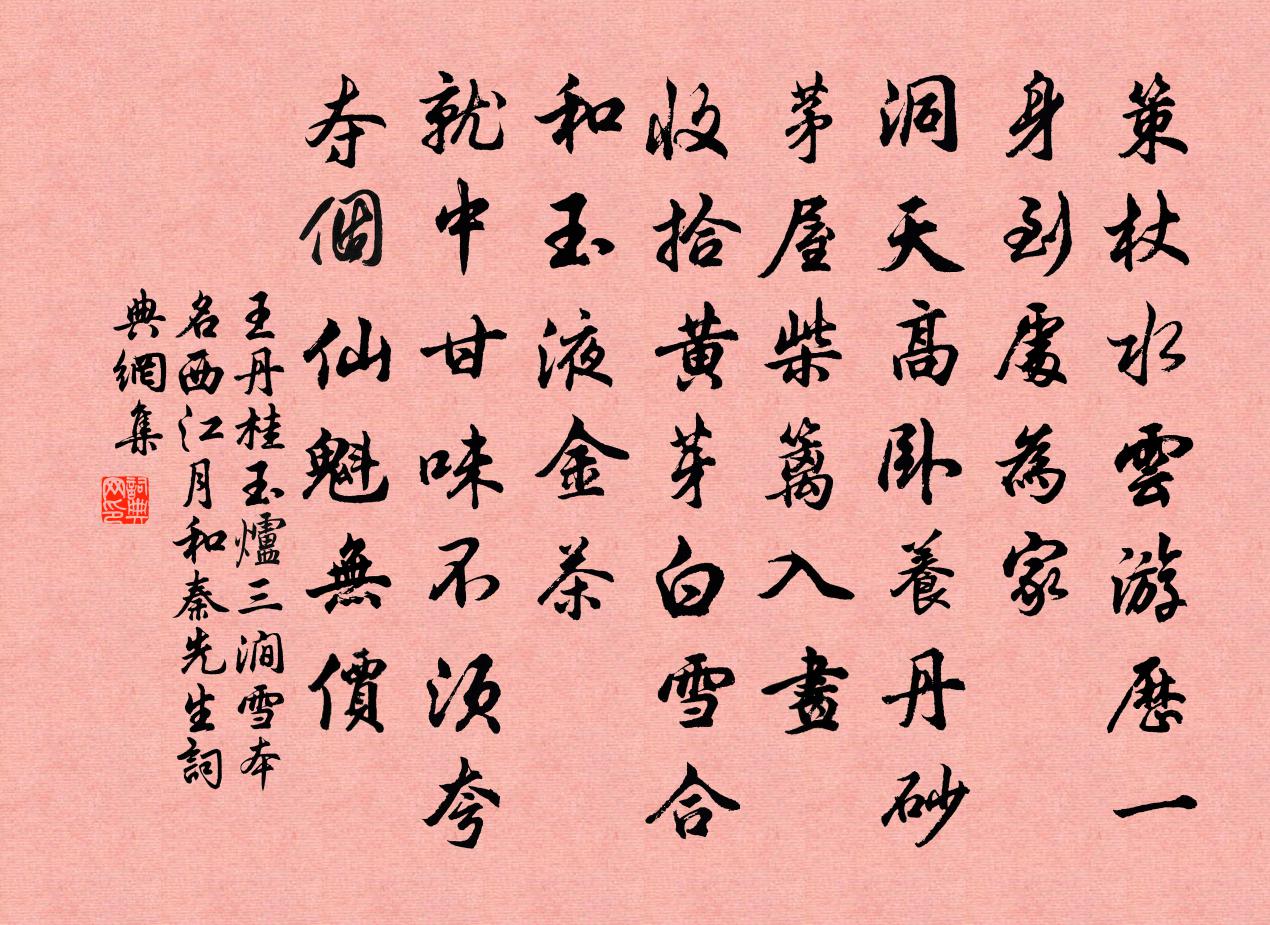 策杖水雲游歷一
身到處為家
洞天高卧養丹砂
茅屋柴籬入畫
收拾黃芽白雪合
和玉液金茶
就中甘味不須夸
夺個仙魁無價
王丹桂玉爐三澗雪本
名西江月和秦先生詞
典網集
詞典網印